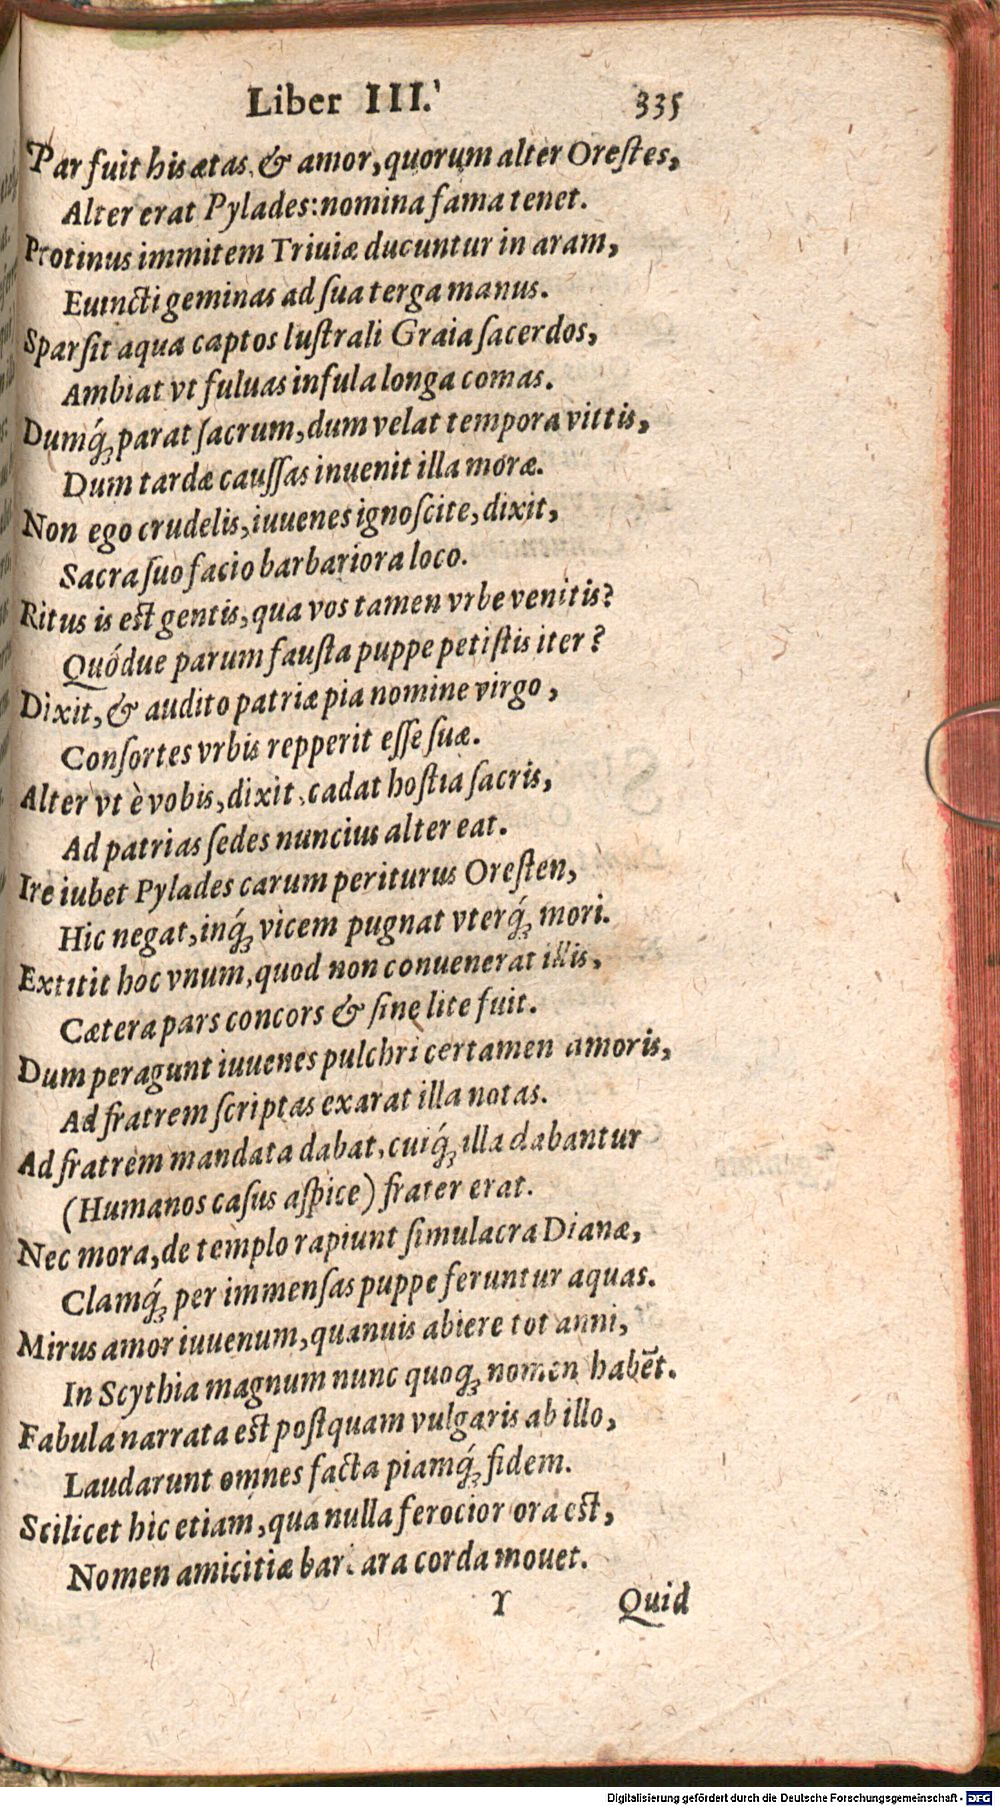 Liber III. 335
Par fuit his ætas & amor, quorum alter Oreſtes,
Alter erat Pylades: nomina fama tenet.
Protinus immitem Triuiæ ducuntur in aram,
Euincti geminas ad ſua terga manus.
Sparſit aqua captos luſtrali Graia ſacerdos,
Ambiat vt fuluas infula longa comas.
Dumq́; parat ſacrum, dum velat tempora vittis,
Dum tardæ cauſſas inuenit illa moræ.
Non ego crudelis, iuuenes ignoſcite, dixit,
Sacra ſuo facio barbariora loco.
Ritus is eſt gentis, qua vos tamen vrbe venitis?
Quódue parum fauſta puppe petiſtis iter?
Dixit, & audito patriæ pia nomine virgo,
Conſortes vrbis repperit eſſe ſuæ.
Alter vt è vobis, dixit, cadat hoſtia ſacris,
Ad patrias ſedes nuncius alter eat.
Ire iubet Pylades carum periturus Oreſten,
Hic negat, inq́; vicem pugnat vterq́; mori.
Extitit hoc vnum, quod non conuenerat illis,
Cætera pars concors & ſine lite fuit.
Dum peragunt iuuenes pulchri certamen amoris,
Ad fratrem ſcriptas exarat illa notas.
Ad fratrem mandata dabat, cuiq́; illa dabantur
(Humanos caſus aſpice) frater erat.
Nec mora, de templo rapiunt ſimulacra Dianæ,
Clamq́; per immenſas puppe feruntur aquas.
Mirus amor iuuenum, quanuis abiere tot anni,
In Scythia magnum nunc quoq; nomen habēt.
Fabula narrata eſt poſtquam vulgaris ab illo,
Laudarunt omnes facta piamq́; fidem.
Scilicet hic etiam, qua nulla ferocior ora eſt,
Nomen amicitiæ barbara corda mouet.
Y Quid
Digitalisierung gefördert durch die Deutsche Forschungsgemeinschaft - DFG